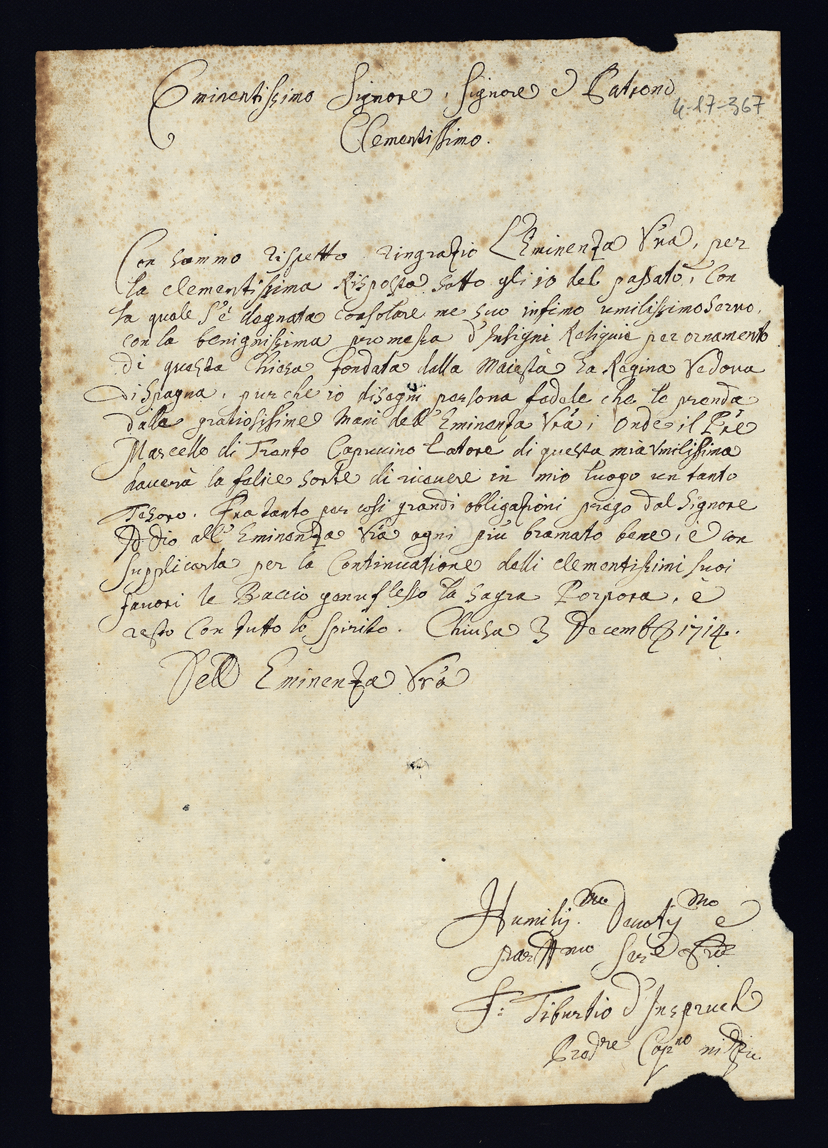 Eminentissimo Signore, Signore e Patrone
4-17-367
Clementissimo.
Con sommo rispetto ringratio L'Eminenza Vrã, per
la clementissima Risposta sotto gli 10 del passato, con
la quale s'è degnata consolare me suo infimo umilissimo servo,
con la benignissima promessa d'Insigni Reliquie per ornamento
di questa Chiesa fondata dalla Maiestà la Regina Vedova
di Spagna, purche io disegni persona fedele che le prenda
dalle gratiosissime Mani dell'Eminenza Vrã; Onde il Pre
Marcello di Trento Capuccino Latore di questa mia Vmilissima
hauerà la felice sorte di riceuere in mio luogo un tanto
Tesoro. Fra tanto per così grandi obligationi prego dal Signore
Iddio all'Eminenza Vrã ogni più bramato bene, e con
supplicarla per la Continuatione delli clementissimi suoi
fauori le Baccio genuflesso la Sagra Porpora, è
resto con tutto lo Spirito. Chiusa 3 Decemb 1714.
Dell Eminenza Vrã
Humilis.mo Deuotis.mo e
F: Tiburtio d'Inspruch
Capno